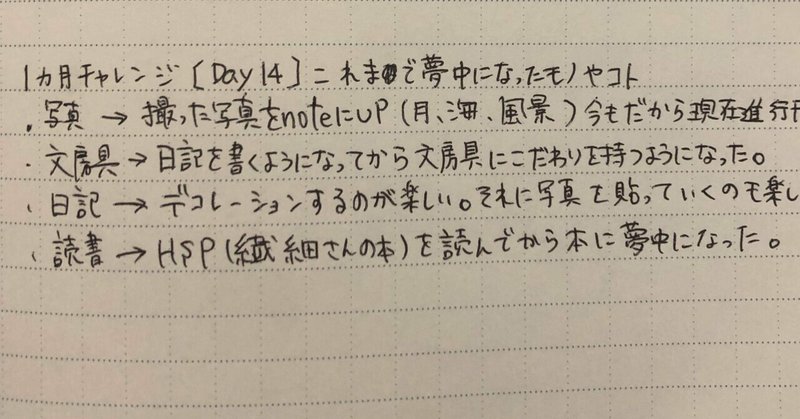 1ヵ月チャレンジ [Day14] これまで夢中になったモノやコト
・写真 → 撮った写真をnoteにUP (月、海、風景) 今もだから現在進行
・文房具 → 日記を書くようになってから文房具にこだわりを持つようになった。
・日記 → デコレーションするのが楽しい。それに写真を貼っていくのも楽し
・読書 → HSP (繊細さんの本) を読んでから本に夢中になった。